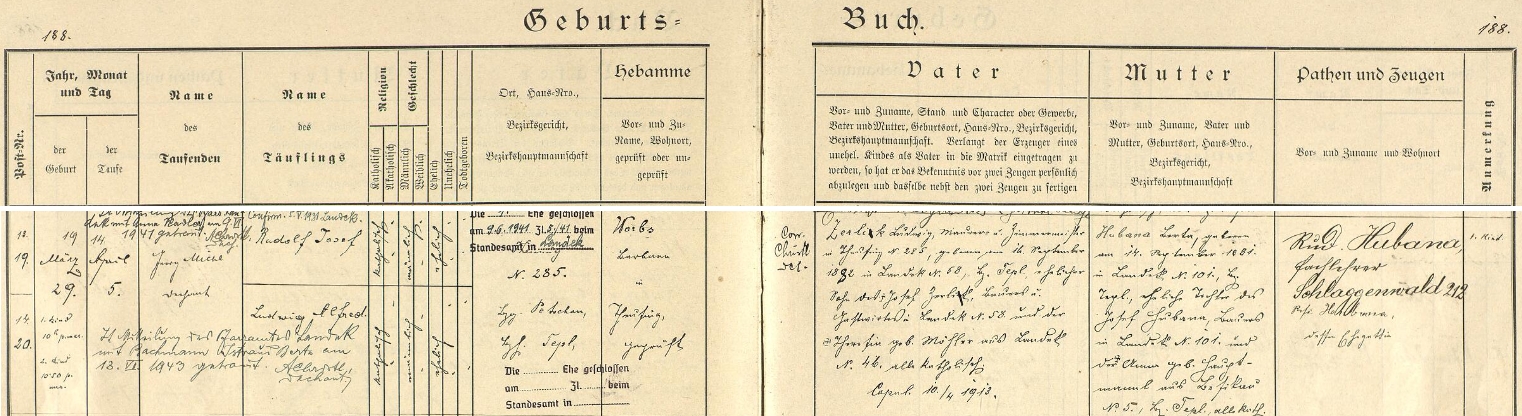 188.
Geburts-
Buch.
188.
Post-Nr.
Jahr, Monat
und Tag
der
Geburt
der
Taufe
Name
des
Taufenden
Name
des
Täuflings
Religion
Katholisch
Akatholisch
Geschlecht
Männlich
Weiblich
Ehelich
Unehelich
Todtgeboren
Ort, Haus-Nro.,
Bezirksgericht,
Bezirkshauptmannschaft
Hebamme
Vor- und Zu-
Name, Wohnort,
geprüft oder un-
geprüft
Vater
Vor- und Zuname, Stand und Character oder Gewerbe,
Vater und Mutter, Geburtsort, Haus-Nro., Bezirksgericht,
Bezirkshauptmannschaft. Verlangt der Erzeuger eines
unehel. Kindes als Vater in die Matrik eingetragen zu
werden, so hat er das Bekenntnis vor zwei Zeugen persönlich
abzulegen und dasselbe nebst den zwei Zeugen zu fertigen
Mutter
Vor- und Zuname, Vater und
Mutter, Geburtsort, Haus-Nro.,
Bezirksgericht,
Bezirkshauptmannschaft
Pathen und Zeugen
Vor- und Zuname und Wohnort
Anmerkung
19
14
19.
März
April
29.
5.
Dechant
Rudolf Josef
Ehe geschlossen
am 9.6.1941 Zl. 8/41 beim
Standesamt in Landek
N. 235.
Worbs
Barbara
14
20.
Ludwig Alfred.
Lt. Mitteilung des Pfarramtes Landek
mit Bachmann Berta am
1943 getraut.
Dechant
katholisch
männlich
ehelich
Bzg. Petschau,
Bzh. Tepl,
Theusing,
geprüft
Die Ehe geschlossen
am Zl. beim
Standesamt in
Zerlik Ludwig, Maurer u. Zimmermeister
in Theusing N. 235, geboren am 16. September
1882 in Landek N. 58, Bz. Tepl, ehelicher
Sohn des Josef Zerlik, Bauers u.
Gastwirtes in Landek N. 58 und der
Theresia geb. Möhler aus Landek
N. 46, alle katholisch
Copul. 10./4 1913.
Hubana Berta, geboren
am 14. September 1881
in Landek N. 101, Bz.
Tepl, eheliche Tochter des
Josef Hubana, Bauers
in Landek N. 101. und
der Anna geb. Haupt-
mannl aus
N. 5, Bz. Tepl, alle kath.
Rud. Hubana,
Fachlehrer
Schlaggenwald 212
Hubana,
dessen Ehegattin
1. Kind